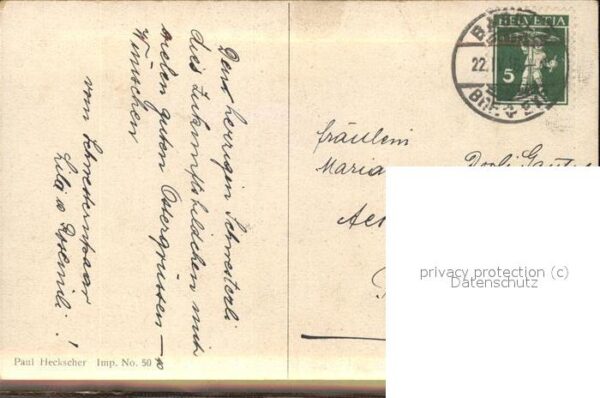 Dem herzigen Schwesterli
dies Zukunftsbildchen mit
vielen guten Ostergrüssen – &
Wünschen
vom Schwesternpaar
Lily & Rösemili !
Paul Heckscher Imp. No. 50
HELVETIA
5
22.
Fräulein
Maria Dorli
privacy protection (c)
Datenschutz